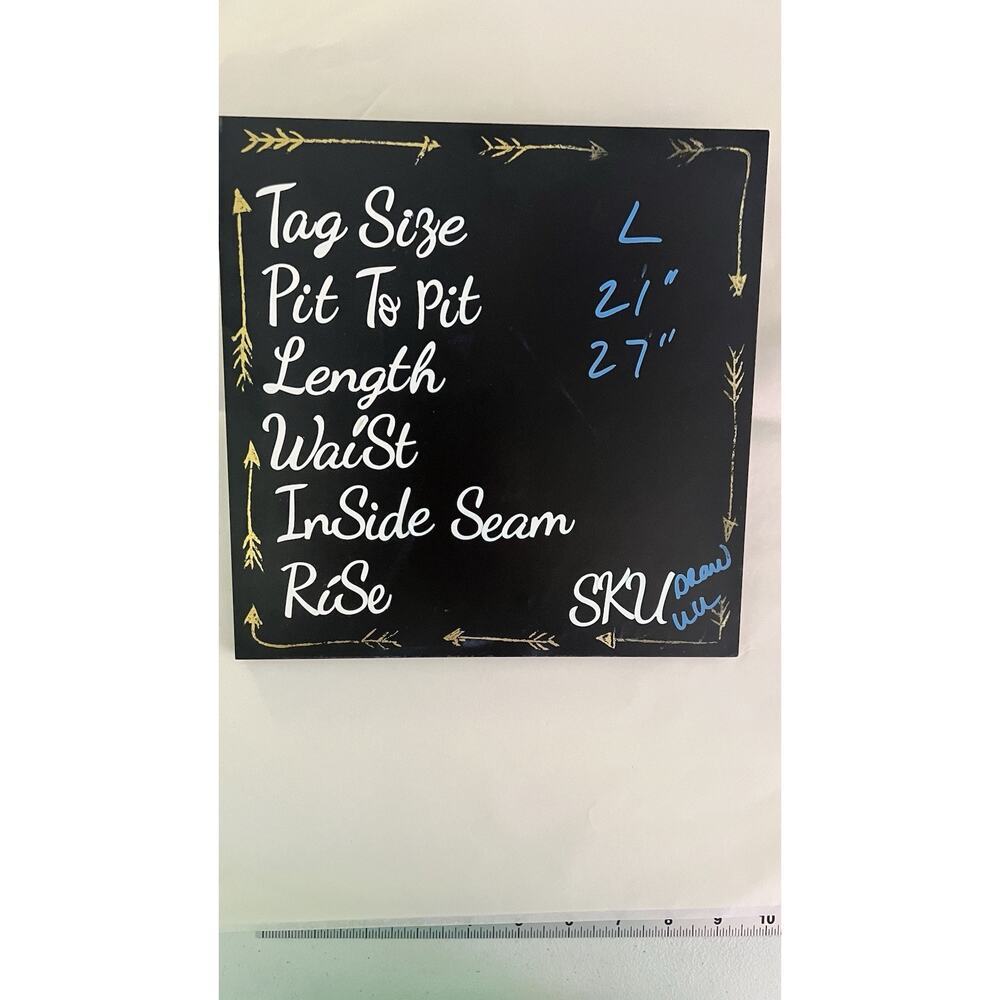 Tag Size L
Pit To Pit 21"
Length 27"
WaiSt
InSide Seam
RiSe
SKU Draw
UU
7 8 9 10